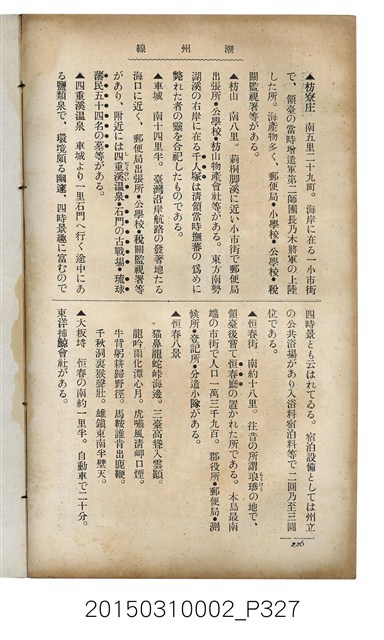 潮州線
▲枋寮庄　南五里二十九町。海岸に在る一小市街
で、領臺の當時增進軍第二師團長乃木將軍の上陸
した所。海產物多く、郵便局・小學校・公學校・稅
關監視署等がある。
▲枋山　南八里。莿桐脚溪に近い小市街で郵便局
出張所・公學校・枋山物產會社等がある。東方南勢
湖溪の右岸に在る千人塚は淸領當時撫蕃の爲めに
斃れた者の靈を合祀したものである。
▲車城　南十四里半。臺灣沿岸航路の發著地たる
海口に近く、郵便局出張所・公學校・稅關監視署等
があり、附近には四重溪溫泉・石門の古戰場・琉球
藩民五十四名の墓等がある。
▲四重溪溫泉　車城より一里石門へ行く途中にあ
る鹽類泉で、環境頗る幽邃。四時景趣に富むので
四時景とも云はれてゐる。宿泊設備としては州立
の公共浴場があり入浴料宿泊料等で二圓乃至三圓
位である。
▲恒春街　南約十八里。往昔の所謂琅𤩝の地で、
領臺後嘗て恒春廳の置かれた所である。本島最南
端の市街で人口一萬三千九百。郡役所・郵便局・測
候所・登記所・分遣小隊がある。
▲恒春八景
猫鼻龍蛇峠海邊。三臺高聳入雲顚。
龍吟雨化潭心月。虎嘯風淸岬口煙。
牛背躬耕歸野徑。馬鞍誰肯出鹿鞭。
千秋洞裏猴聲壯。雄鎭東南半壁天。
▲大板埒　恒春の南約一里半。自動車で二十分。
東洋捕鯨會社がある。
226
20150310002_P327